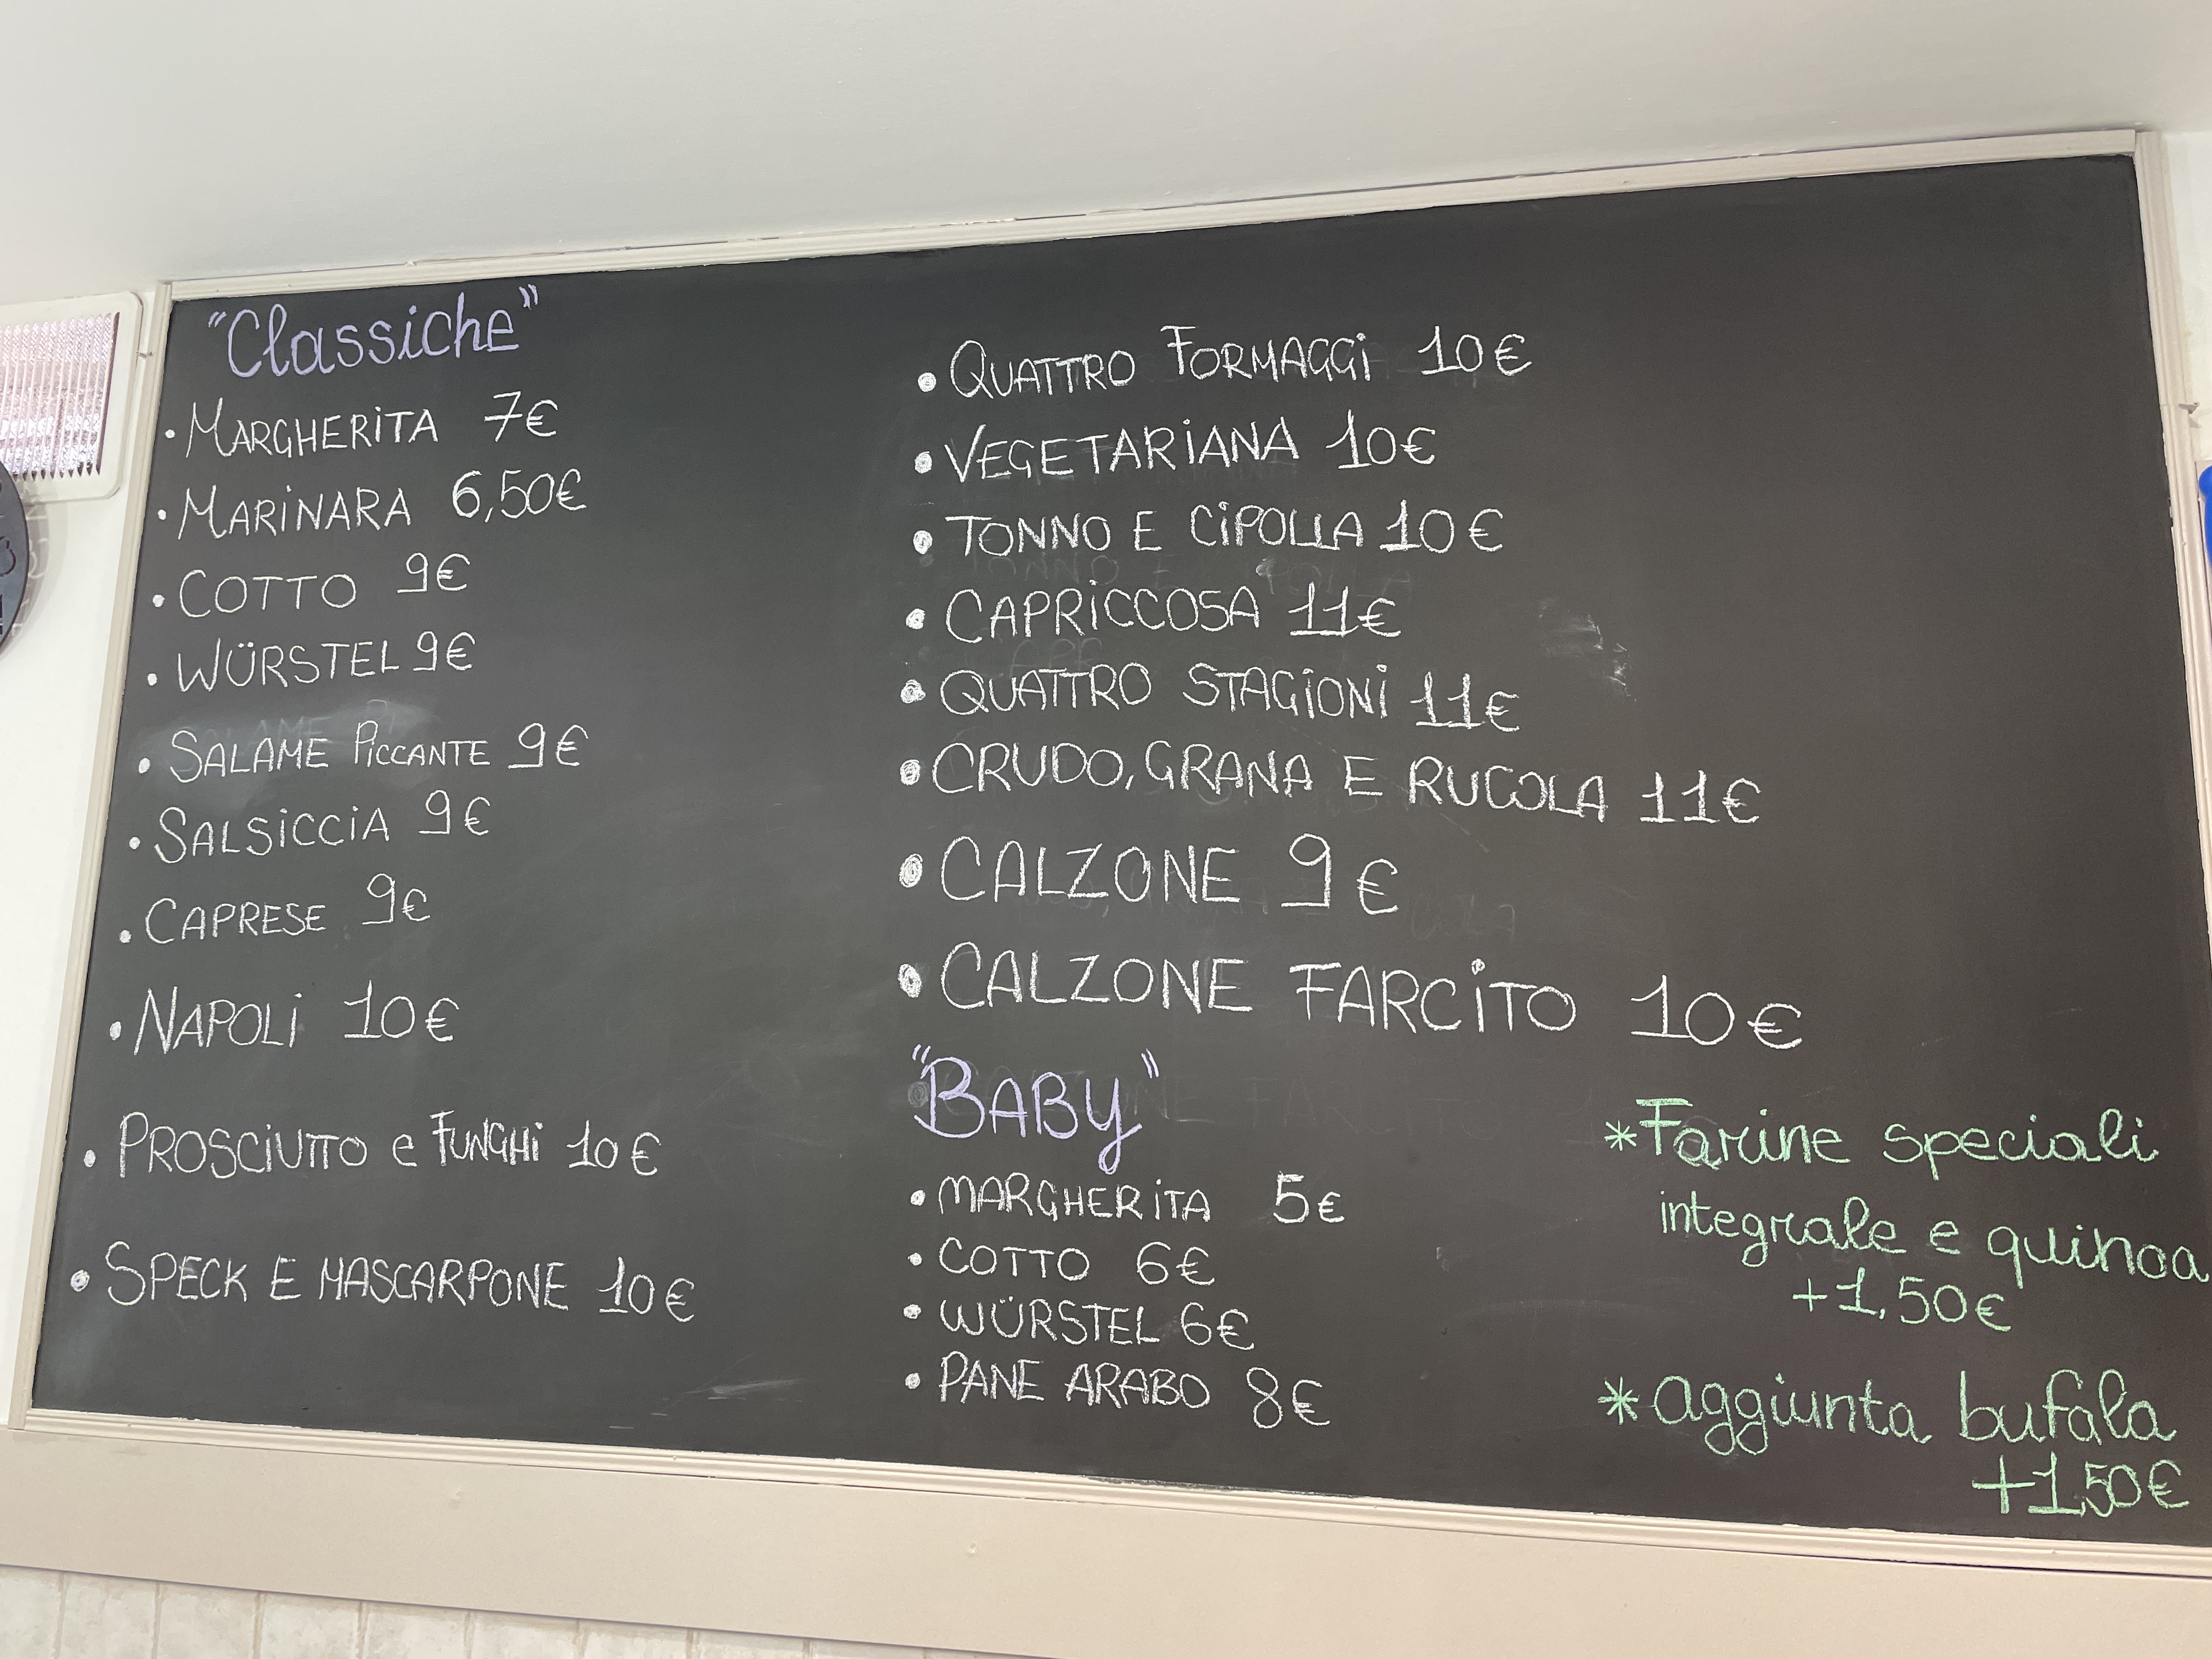 "Classiche"
• MARGHERITA 7€
• MARINARA 6,50€
• COTTO 9€
• WÜRSTEL 9€
• SALAME PICCANTE 9€
• SALSICCIA 9€
• CAPRESE 9€
• NAPOLI 10€
• PROSCIUTTO e FUNGHI 10€
• SPECK E MASCARPONE 10€
• QUATTRO FORMAGGI 10€
• VEGETARIANA 10€
• TONNO E CIPOLLA 10€
• CAPRICCOSA 11€
• QUATTRO STAGIONI 11€
• CRUDO, GRANA E RUCOLA 11€
• CALZONE 9€
• CALZONE FARCITO 10€
"BABY"
• MARGHERITA 5€
• COTTO 6€
• WÜRSTEL 6€
• PANE ARABO 8€
*Farine speciali
integrale e quinoa
+1,50€
*aggiunta bufala
+1,50€